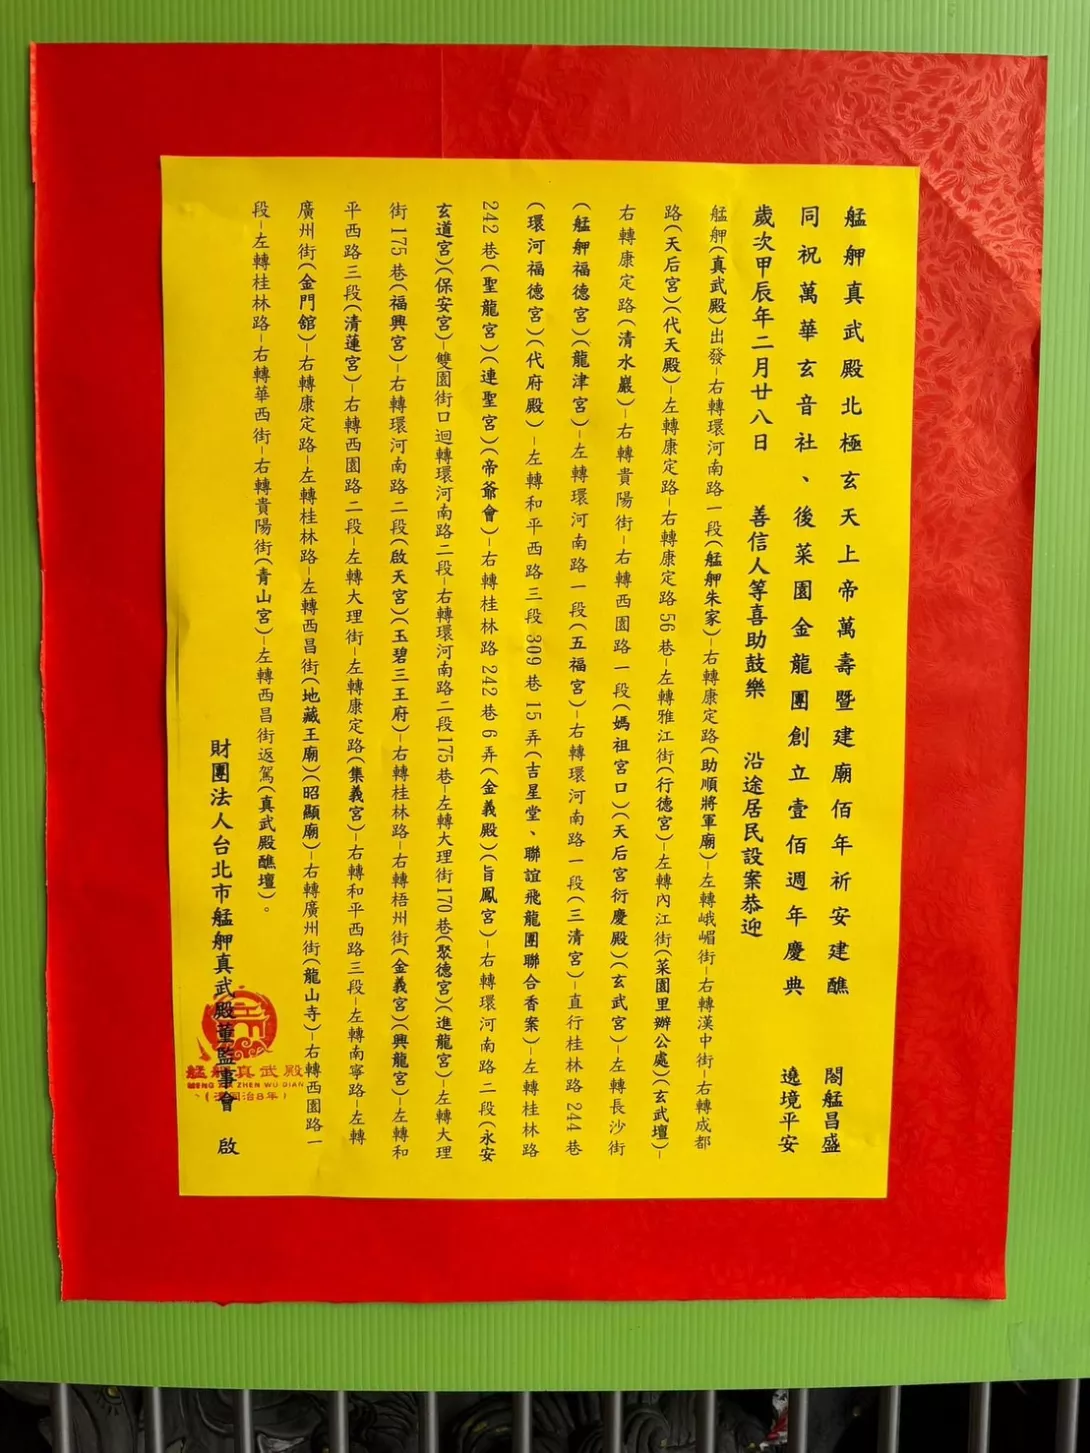 艋舺真武殿北極玄天上帝萬壽暨建廟佰年祈安建醮 閤艋昌盛
同祝萬華玄音社、後菜園金龍團創立壹佰週年慶典 遶境平安
歲次甲辰年二月廿八日 善信人等喜助鼓樂 沿途居民設案恭迎
艋舺(真武殿)出發-右轉環河南路一段(艋舺朱家)-右轉康定路(助順將軍廟)-左轉峨嵋街-右轉漢中街-右轉成都
路(天后宮)(代天殿)-左轉康定路-右轉康定路56巷-左轉雅江街(行德宮)-左轉內江街(菜園里辦公處)(玄武壇)-
右轉康定路(清水巖)-右轉貴陽街-右轉西園路一段(媽祖宮口)(天后宮衍慶殿)(玄武宮)-左轉長沙街
(艋舺福德宮)(龍津宮)-左轉環河南路一段(五福宮)-右轉環河南路一段(三清宮)-直行桂林路244巷
(環河福德宮)(代府殿)-左轉和平西路三段309巷15弄(吉星堂、聯誼飛龍團聯合香案)-左轉桂林路
242巷(聖龍宮)(連聖宮)(帝爺會)-右轉桂林路242巷6弄(金義殿)(旨鳳宮)-右轉環河南路二段(永安
玄道宮)(保安宮)-雙園街口迴轉環河南路二段-右轉環河南路二段175巷-左轉大理街170巷(聚德宮)(進龍宮)-左轉大理
街175巷(福興宮)-右轉環河南路二段(啟天宮)(玉碧三王府)-右轉桂林路-右轉梧州街(金義宮)(興龍宮)-左轉和
平西路三段(清蓮宮)-右轉西園路二段-左轉大理街-左轉康定路(集義宮)-右轉和平西路三段-左轉南寧路-左轉
廣州街(金門舘)-右轉康定路-左轉桂林路-左轉西昌街(地藏王廟)(昭顯廟)-右轉廣州街(龍山寺)-右轉西園路一
段-左轉桂林路-右轉華西街-右轉貴陽街(青山宮)-左轉西昌街返駕(真武殿醮壇)。
財團法人台北市艋舺真武殿董監事會 啟
艋舺真武殿
ZHEN WU DIAN